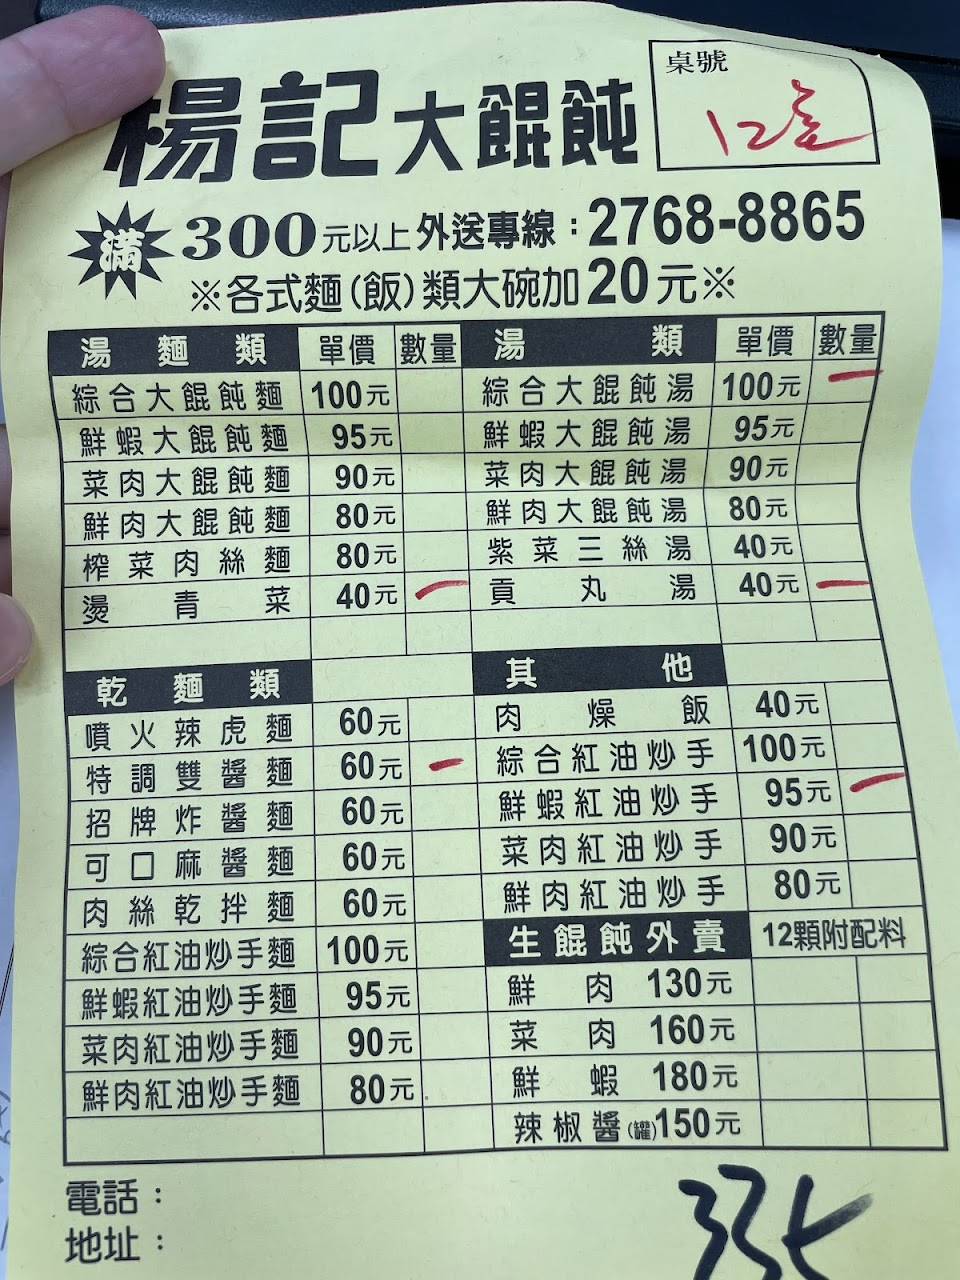 楊記大餛飩
桌號
12
滿300元以上外送專線：2768-8865
※各式麵(飯)類大碗加20元※
湯麵類 單價 數量
綜合大餛飩麵 100元
鮮蝦大餛飩麵 95元
菜肉大餛飩麵 90元
鮮肉大餛飩麵 80元
榨菜肉絲麵 80元
燙青菜 40元 一
湯類 單價 數量
綜合大餛飩湯 100元 一
鮮蝦大餛飩湯 95元
菜肉大餛飩湯 90元
鮮肉大餛飩湯 80元
紫菜三絲湯 40元
貢丸湯 40元 一
乾麵類
噴火辣虎麵 60元
特調雙醬麵 60元 一
招牌炸醬麵 60元
可口麻醬麵 60元
肉絲乾拌麵 60元
綜合紅油炒手麵 100元
鮮蝦紅油炒手麵 95元
菜肉紅油炒手麵 90元
鮮肉紅油炒手麵 80元
其他
肉燥飯 40元
綜合紅油炒手 100元
鮮蝦紅油炒手 95元 一
菜肉紅油炒手 90元
鮮肉紅油炒手 80元
生餛飩外賣 12顆附配料
鮮肉 130元
菜肉 160元
鮮蝦 180元
辣椒醬(罐)150元
電話：
地址：